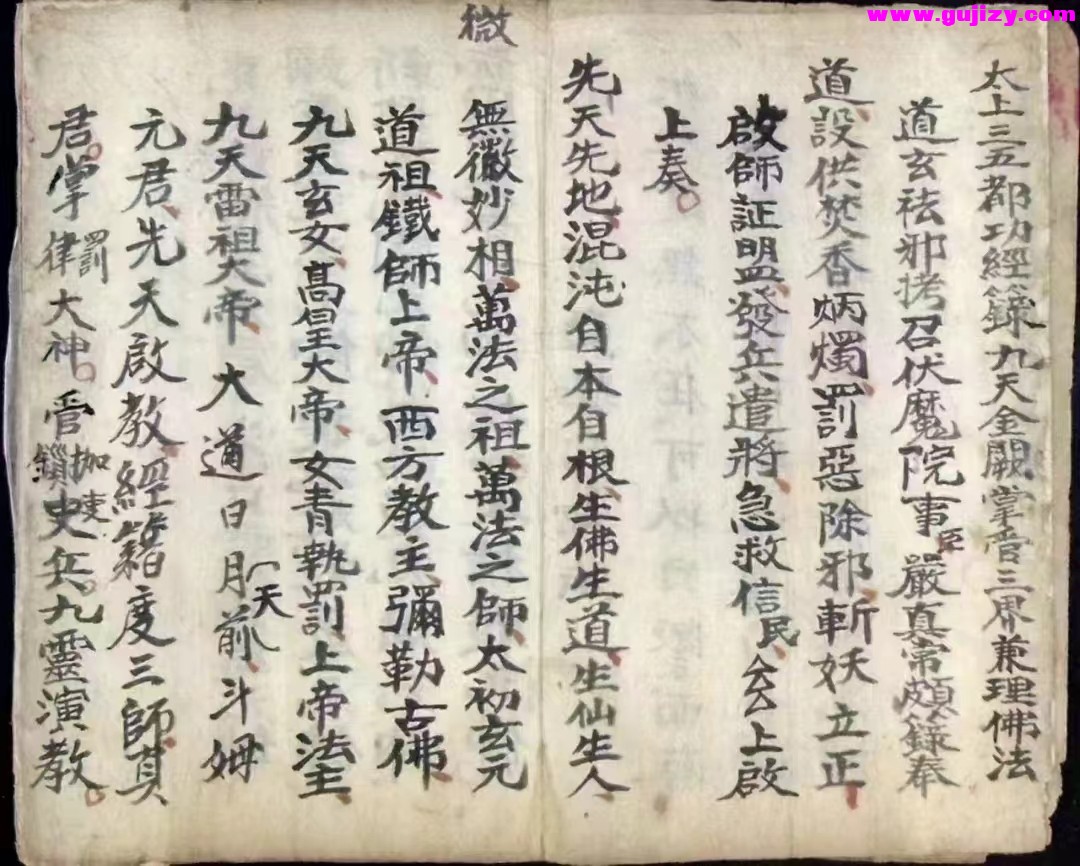 www.gujizy.com
太上三五都功經籙九天金闕掌管三界兼理佛法
道玄祛邪拷召伏魔院事臣嚴真常頗籙奉
道設供焚香炳燭罰惡除邪斬妖立正
啟師証明盟發兵遣將急救信民厶厶上啟
上奏。
先天先地混沌自本自根生佛生道生仙生人
微
無徽妙相萬法之祖萬法之師太初玄元
道祖鐵師上帝西方教主彌勒古佛
九天玄女高皇大帝女青執罰上帝法主
九天雷祖大帝大道日月前天斗姆
元君先天啟教經籍度三師真
君。掌律罰大神。管鎖枷吏兵。九靈演教。